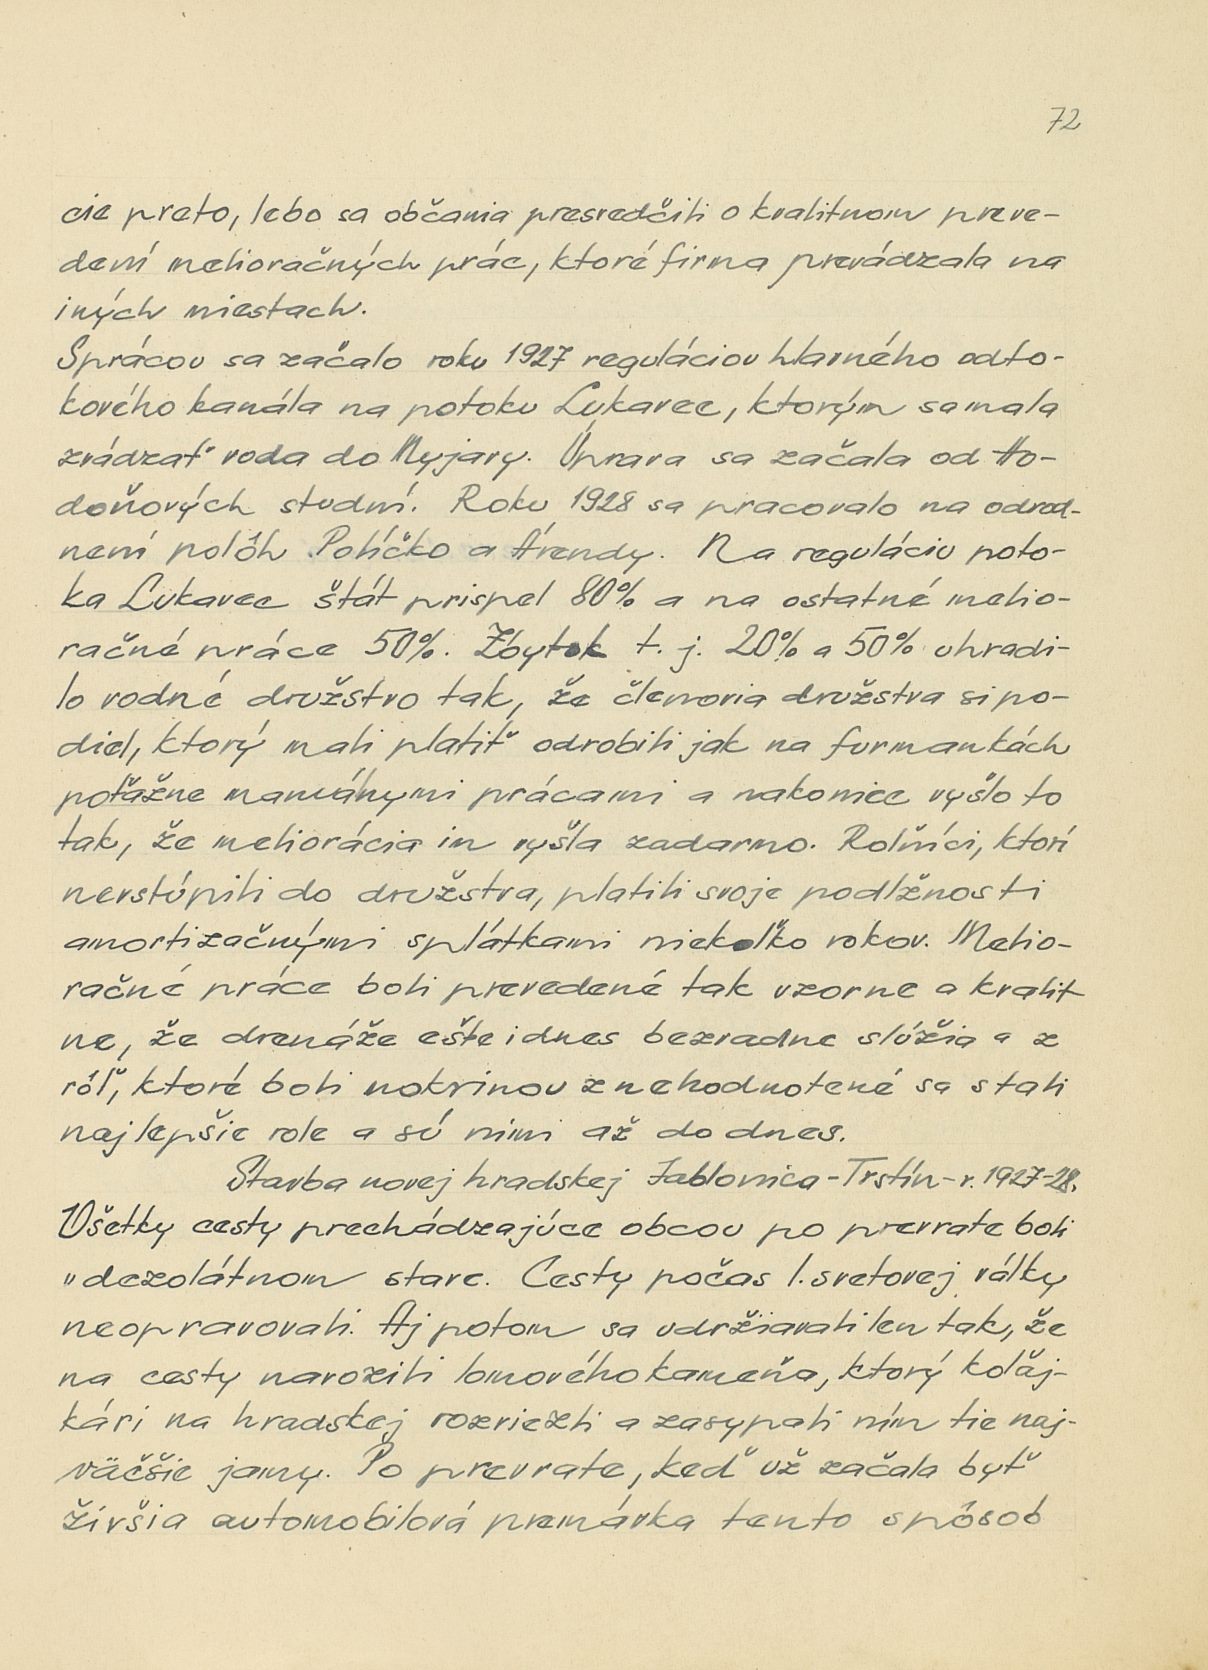 72
cie preto, lebo sa občania presredčili o kvalitnom preve-
dení melioračných prác, ktoré firma prevádzala na
iných miestach.
Sprácou sa začalo roku 1927 reguláciou hlavného odto-
kového kanála na potoku Lukavec, ktorým sa mala
zvádzať voda do Myjavy. Úprava sa začala od Ho-
doňových studní. Roku 1928 sa pracovalo na odvod-
není polôh Políčko a Árendy. Na reguláciu poto-
ka Lukavec štát prispel 80% a na ostatné melio-
račné práce 50%. Zbytok t. j. 20% a 50% uhradi-
lo vodné družstvo tak, že členovia družstva si po-
diel, ktorý mali platiť odrobili jak na furmankách
poťažne manuálnymi prácami a nakoniec vyšlo to
tak, že meliorácia im vyšla zadarmo. Roľníci, ktorí
nevstúpili do družstva, platili svoje podlžnosti
amortizačnými splátkami niekoľko rokov. Melio-
račné práce boli prevedené tak vzorne a kvalit
ne, že drenáže ešte i dnes bezvadne slúžia a z
rôľ, ktoré boli mokrinou znehodnotené sa stali
najlepšie role a sú nimi až do dnes.
Stavba novej hradskej Jablonica-Trstín-r. 1927-28.
Všetky cesty prechádzajúce obcou po prevrate boli
v dezolátnom stave. Cesty počas I. svetovej války
neopravovali. Aj potom sa udržiavali len tak, že
na cesty navozili lomového kameňa, ktorý koľaj-
kári na hradskej rozviezli a zasypali ním tie naj-
väčšie jamy. Po prevrate, keď už začala byť
živšia automobilová premávka tento spôsob